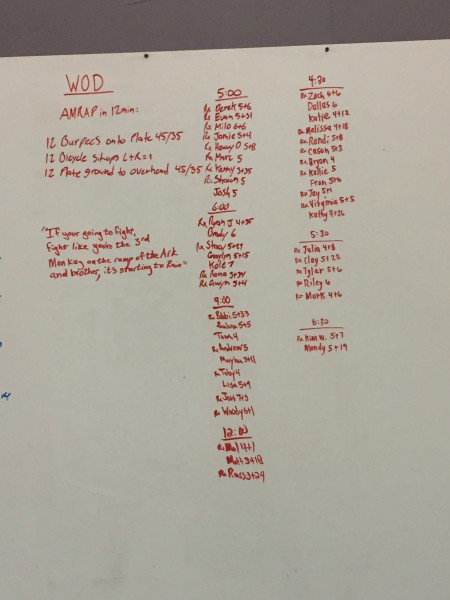 WOD
AMRAP in 12min:
12 Burpees onto Plate 45/35
12 Bicycle situps L+R=1
12 Plate ground to overhead 45/35
"If your going to fight,
fight like you're the 3rd
Monkey on the ramp of the Ark
and brother, it's starting to Rain"
5:00
Rx Derek 5+6
Rx Evan 5+31
Rx Milo 6+6
Rx Jamie 5+4
Rx Henry O 5+8
Rx Marc 5
Rx Kenny 3+35
Rx Shawn 5
Josh 5
6:00
Rx Ryan J 4+35
Cindy 6
Rx Stacy 5+27
5+15
Kole 7
Rx Dana
Rx 5+4
9:00
Rx Bobbi 5+33
5+5
Tom 4
Rx Andrew 5
3+11
Rx Toby 4
Lisa 5+9
Rx Jess 7+3
Rx Woody 6+1
12:00
Rx Mel 4+1
Matt 3+18
Rx Russ 3+24
4:30
Rx Zach 6+6
Dallas 6
Katie 4+12
Rx Melissa 4+18
Rx Randi 5+8
Rx Cason 5+3
Rx Bryan 4
Rx Kellie 5
Fran 5+6
Rx Jay 5+1
Rx Virginia 5+5
Kathy 4+26
5:30
Rx Julia 4+8
Rx Clay 5+25
Rx Tyler 5+6
Rx Riley 6
Rx Mark 4+6
6:30
Rx Kim W. 5+7
Mandy 5+19